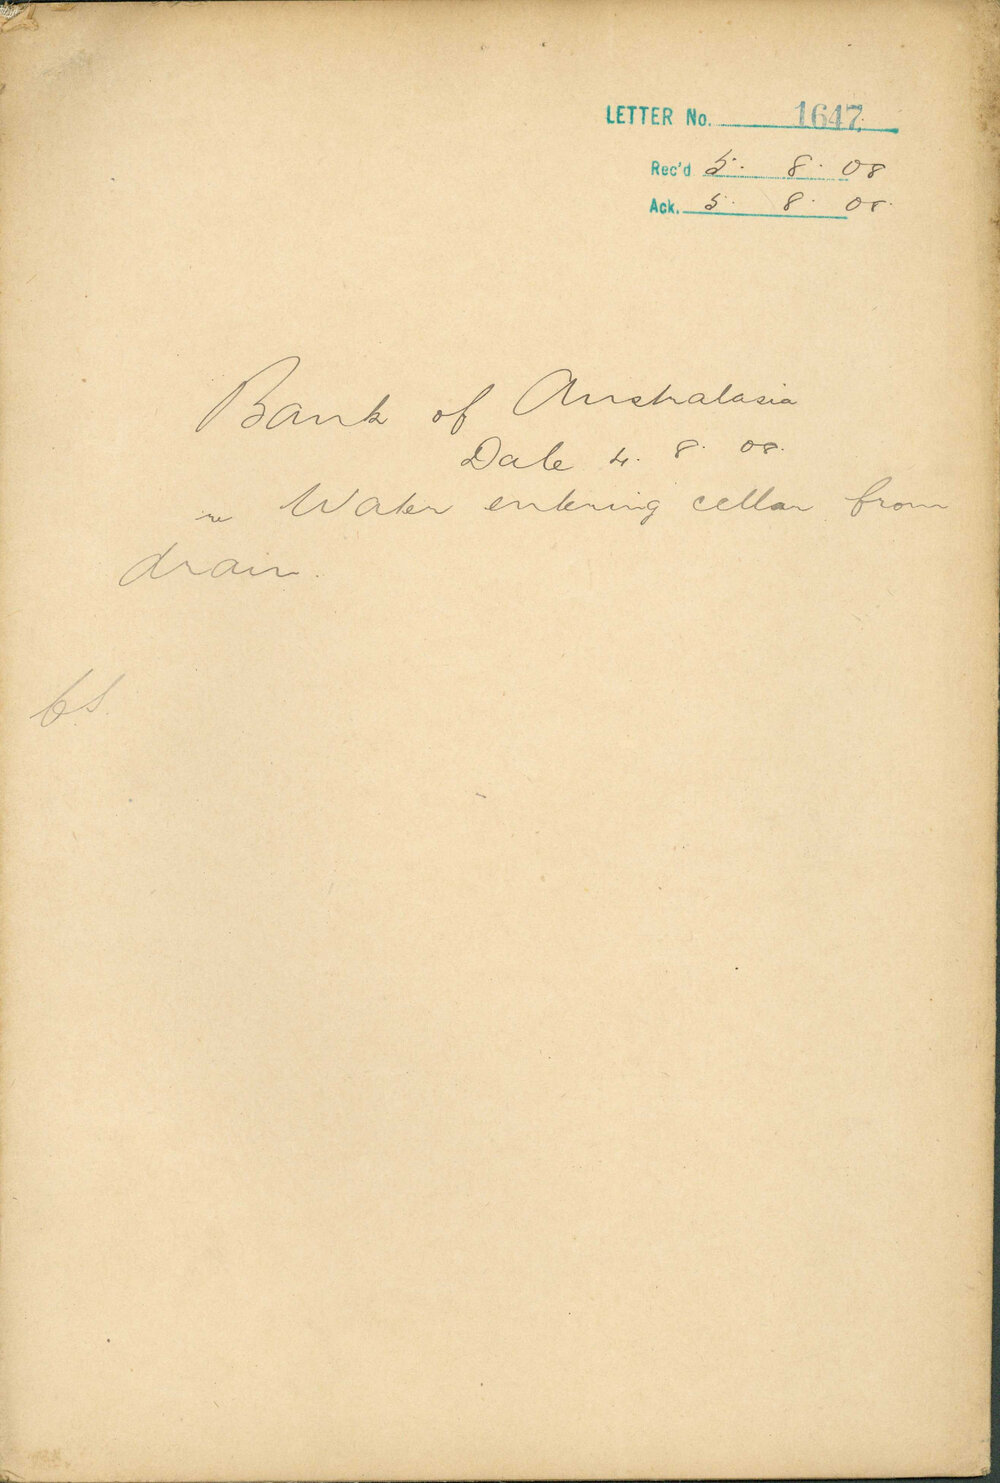 LETTER No. 1647
Rec'd 5. 8. 08
Ack. 5. 8. 08.
Bank of Australasia
Date 4. 8. 08.
re Water entering cellar from
drain.